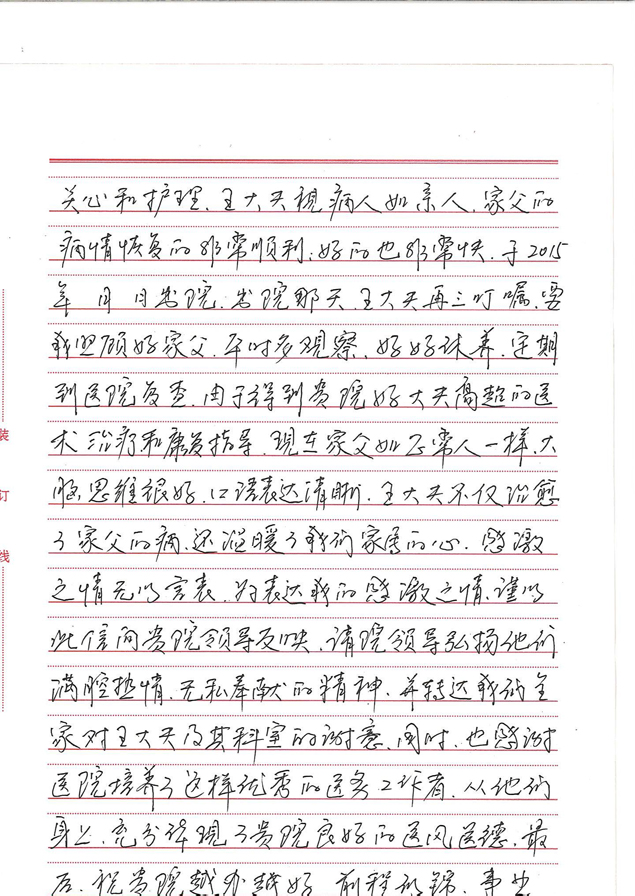 关心和护理、王大夫视病人如亲人、家父的
病情恢复的非常顺利;好的也非常快、于2015
年 月 日出院、出院那天、王大夫再三叮嘱、要
我照顾好家父、平时多观察、好好休养、定期
到医院复查、由于得到贵院好大夫高超的医
术治疗和康复指导、现在家父如正常人一样、大
脑思维很好、口语表达清晰、王大夫不仅治愈
了家父的病、还温暖了我们家属的心、感激
之情无以言表、为表达我的感激之情、谨以
此信向贵院领导反映、请院领导弘扬他们
满腔热情、无私奉献的精神、并转达我们全
家对王大夫及其科室的谢意、同时、也感谢
医院培养了这样优秀的医务工作者、从他们
身上、充分体现了贵院良好的医风医德、最
后、祝贵院越办越好、前程似锦、事业
装
订
线